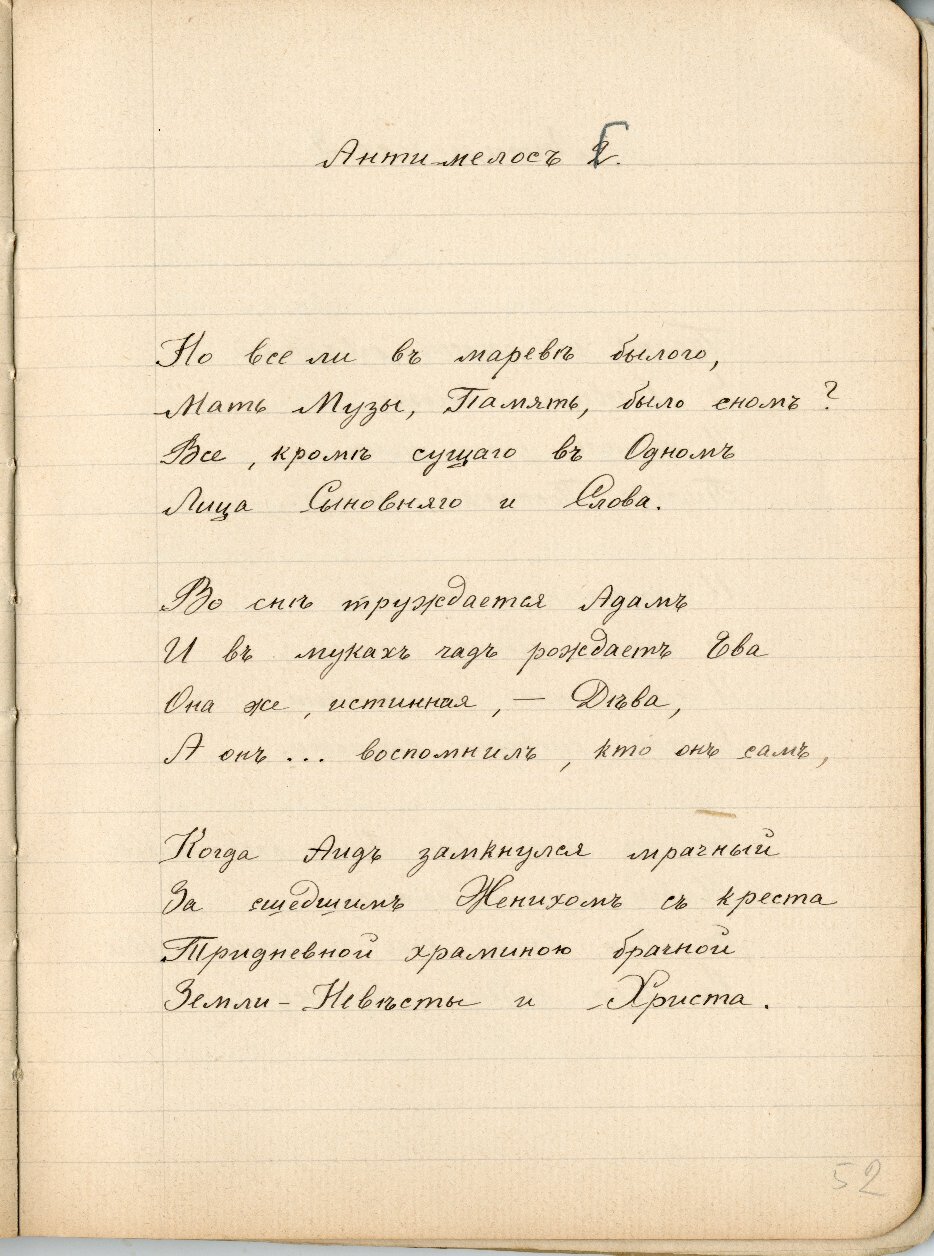 Антимелосъ
Но все ли въ маревѣ былого,
Мать Музы, Память, было сномъ?
Все, кромѣ сущаго въ Одномъ
Лица Сыновняго и Слова.
Во снѣ труждается Адамъ
И въ мукахъ чадъ рождаетъ Ева
Она же, истинная, – Дѣва,
А онъ... воспомнилъ, кто онъ самъ,
Когда Аидъ замкнулся мрачный
За сшедшимъ Женихомъ съ креста
Тридневной храминою брачной
Земли-Невѣсты и Христа.
52